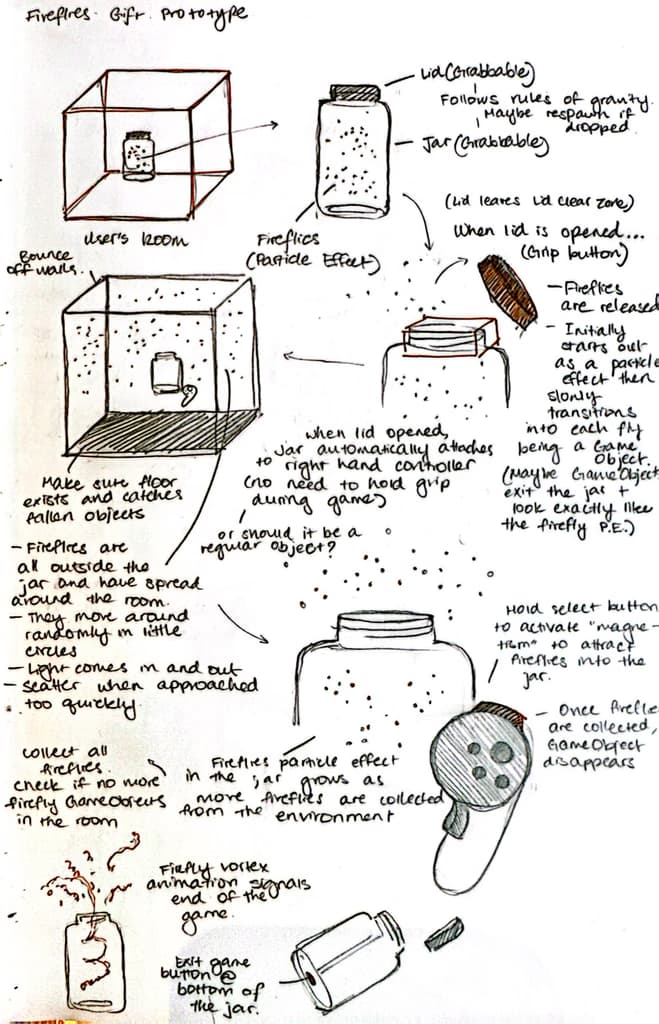 Fireflies Gift Prototype
Lid (Grabbable)
Follows rules of gravity.
Maybe respawn if
dropped
Jar (Grabbable)
User's Room
Fireflies
(Particle Effect)
(Lid leaves Lid clear zone)
When lid is opened...
(Grip button)
Bounce
off walls.
- Fireflies
are released
- Initially
starts out
as a particle
effect then
slowly
transitions
into each fly
being a Game
Object.
(Maybe GameObjects
exit the jar +
look exactly like
the firefly P.E.)
When lid opened,
jar automatically attaches
to right hand controller
(no need to hold grip
during game)
or should it be a
regular object?
Make sure floor
exists and catches
fallen objects
- Fireflies are
all outside the
jar and have spread
around the room.
- They move around
randomly in little
circles
- Light comes in and out
- scatter when approached
too quickly
Hold select button
to activate "magne-
tism" to attract
fireflies into the
jar.
- Once fireflies
are collected,
GameObject
disappears
Fireflies particle effect
in the jar grows as
more fireflies are collected
from the environment
Collect all
fireflies.
check if no more
firefly GameObjects
in the room
Firefly vortex
animation signals
end of the
game.
Exit game
button @
bottom of
the jar.